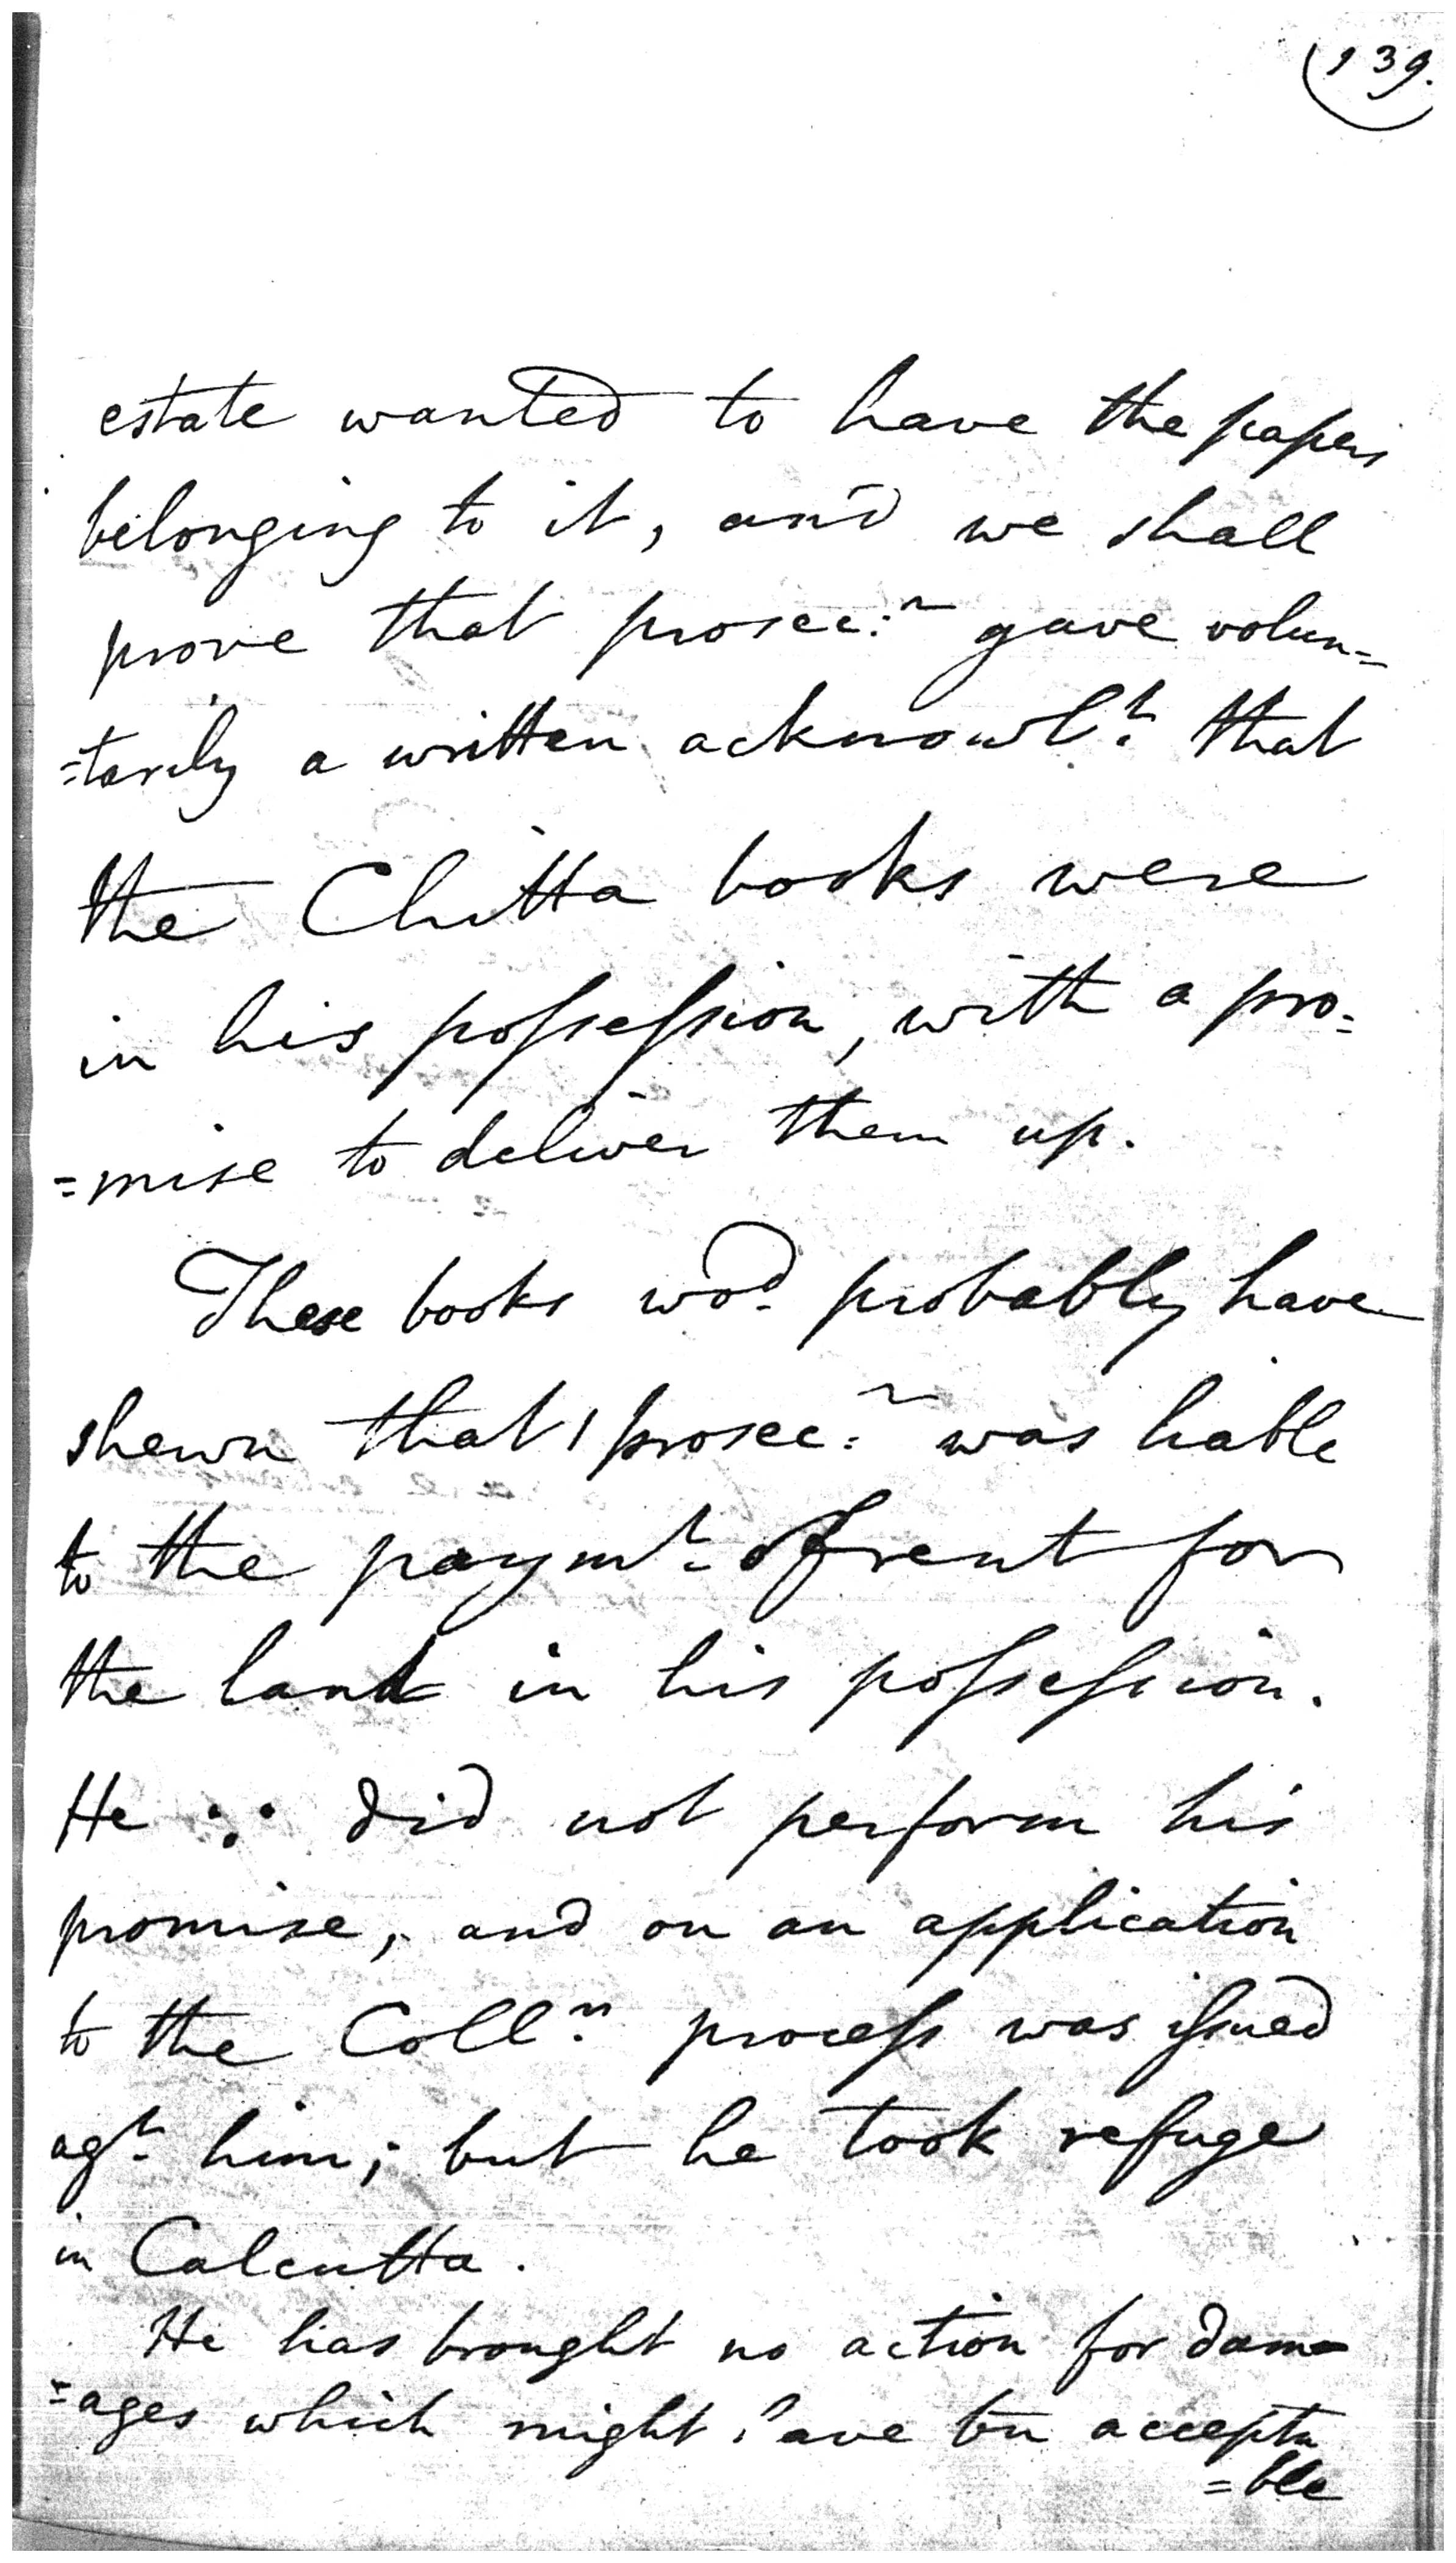 139.
estate wanted to have the papers
belonging to it, and we shall
prove that prosec:r gave volun=
=tarily a written acknowl.t that
the Chitta books were
in his possession, with a pro=
=mise to deliver them up.
These books wod. probably have
shewn that prosec:r was liable
to the paymt. of rent for
the land in his possession.
He ∵ did not perform his
promise, and on an application
to the Coll.r process was issued
agt. him; but he took refuge
in Calcutta.
He has brought no action for dam=
=ages which might have bn accepta
=ble